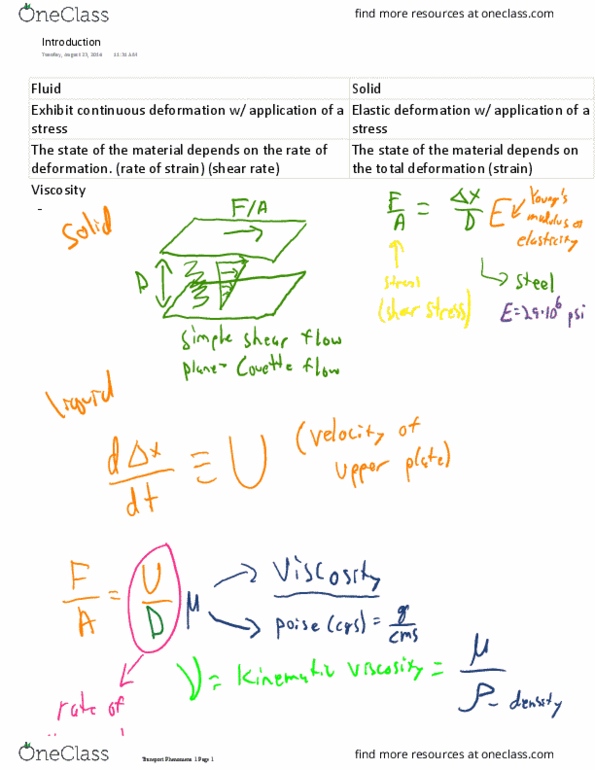 OneClass
find more resources at oneclass.com
Introduction
Tuesday, August 23, 2016 11:38 AM
Fluid Solid
Exhibit continuous deformation w/ application of a stress Elastic deformation w/ application of a stress
The state of the material depends on the rate of deformation. (rate of strain) (shear rate) The state of the material depends on the total deformation (strain)
Viscosity
-
Solid
F/A
D
F/A = Δx/D E
Young's
modulus of
elasticity
stress
(shear stress)
steel
E=29·10⁶ psi
simple shear flow
plane- Couette flow
liquid
dΔx/dt ≡ U (velocity of
upper plate)
F/A = U/D μ
Viscosity
poise (cgs) = g/cms
ν = Kinematic viscosity = μ/ρ - density
rate of
OneClass
Transport Phenomena 1 Page 1
find more resources at oneclass.com